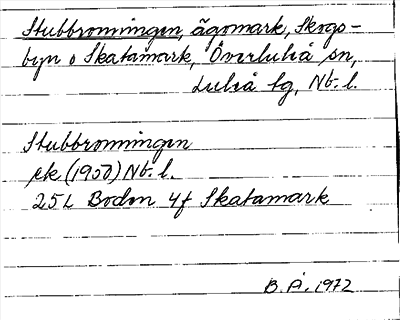 Stubbromningen, ägomark, Skogs-
byn o Skatamark, Överluleå sn,
Luleå tg, Nb. l.
Stubbromningen
ek (1950) Nb. l.
25L Boden 4f Skatamark
B. Å. 1972